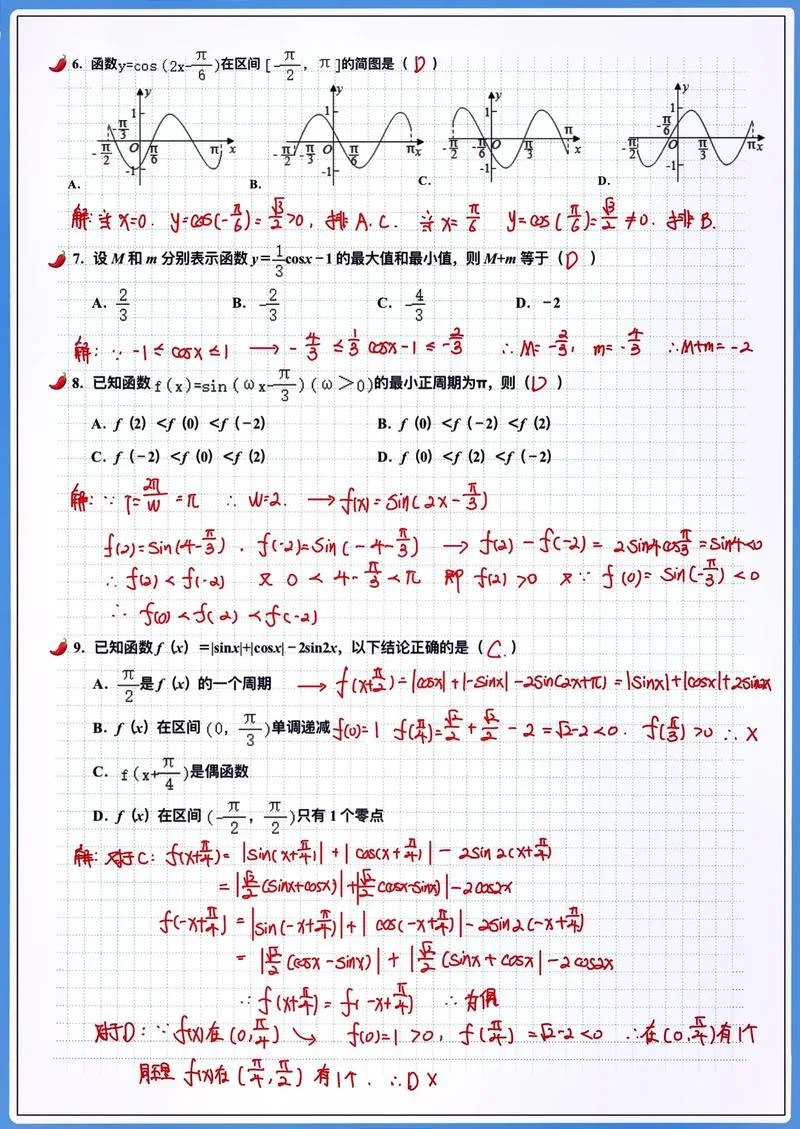 6. 函数y=cos(2x-π/6)在区间[-π/2，π]的简图是（ D ）
A. B. C. D.
解: 当 x=0. y=cos(-π/6)=√3/2>0, 排A.C. 当 x=π/6 y=cos(π/6)=√3/2≠0. 排B.
7. 设 M 和 m 分别表示函数 y=1/3cosx-1 的最大值和最小值，则 M+m 等于（ D ）
A. 2/3 B. -2/3 C. -4/3 D. -2
解: ∵ -1≤cosx≤1 → -4/3≤1/3cosx-1≤-2/3 ∴M=-2/3, m=-4/3 ∴M+m=-2
8. 已知函数f(x)=sin(ωx-π/3)(ω>0)的最小正周期为π，则（ D ）
A. f（2）<f（0）<f（-2） B. f（0）<f（-2）<f（2）
C. f（-2）<f（0）<f（2） D. f（0）<f（2）<f（-2）
解: ∵ T=2π/W=π ∴ W=2. → f(x)=sin(2x-π/3)
f(2)=sin(4-π/3). f(-2)=sin(-4-π/3) → f(2)-f(-2)=2sin4cosπ/3=sin4<0
∴ f(2)<f(-2) 又 0<4-π/3<π 即 f(2)>0 又∵ f(0)=sin(-π/3)<0
∴ f(0)<f(2)<f(-2)
9. 已知函数 f（x）=|sinx|+|cosx|-2sin2x，以下结论正确的是（ C. ）
A. π/2是 f（x）的一个周期 → f(x+π/2)=|cosx|+|-sinx|-2sin(2x+π)=|sinx|+|cosx|+2sin2x
B. f（x）在区间(0，π/3)单调递减 f(0)=1 f(π/4)=√2/2+√2/2-2=√2-2<0. f(π/3)>0 ∴ ×
C. f(x+π/4)是偶函数
D. f（x）在区间(-π/2，π/2)只有 1 个零点
解: 对于C: f(x+π/4)=|sin(x+π/4)|+|cos(x+π/4)|-2sin2(x+π/4)
=|√2/2(sinx+cosx)|+|√2/2cosx-sinx)|-2cos2x
f(-x+π/4)=|sin(-x+π/4)|+|cos(-x+π/4)|-2sin2(-x+π/4)
=|√2/2(cosx-sinx)|+|√2/2(sinx+cosx|-2cos2x
∵ f(x+π/4)=f(-x+π/4) ∴ 为偶
对于D: ∵ f(x)在(0,π/4)↘ f(0)=1>0, f(π/4)=√2-2<0 ∴在(0,π/4)有1个
同理 f(x)在(π/4,π/2)有1个. ∴D ×